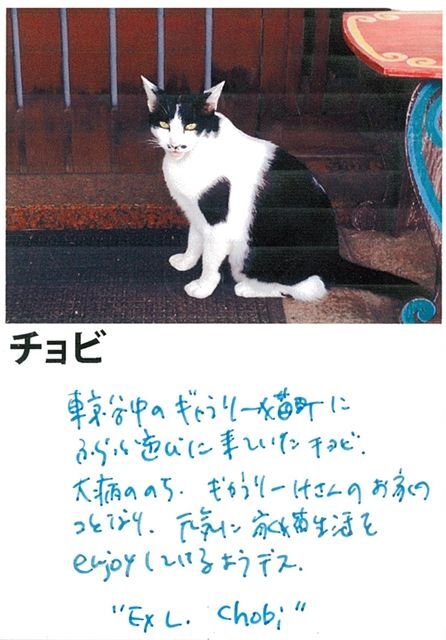 チョビ
東京谷中のギャラリー猫町に
ふらふら遊びに来ていたチョビ.
大病ののち. ギャラリーけさんのお家の
コとなり. 元気に家猫生活を
enjoyしているようデス.
"Ex L. Chobi"